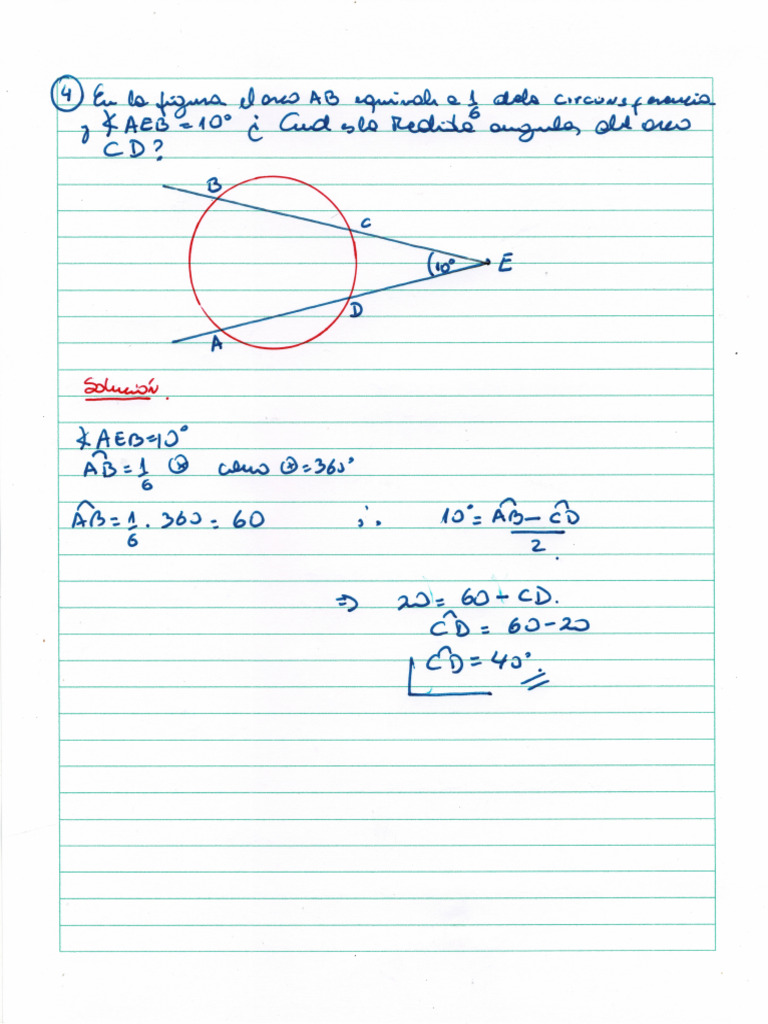 4 En la figura el arco AB equivale a 1/6 de la circunsferencia
y ∡AEB = 10° ¿ Cual es la Medida angular del arco
CD?
B
C
10° E
D
A
Solución.
∡AEB=10°
A͡B = 1/6 ⊛ como ⊛ = 360°
A͡B = 1/6 . 360 = 60 ∴ 10° = (A͡B − C͡D)/2.
⇒ 20 = 60 − CD.
C͡D = 60 − 20
C͡D = 40°.